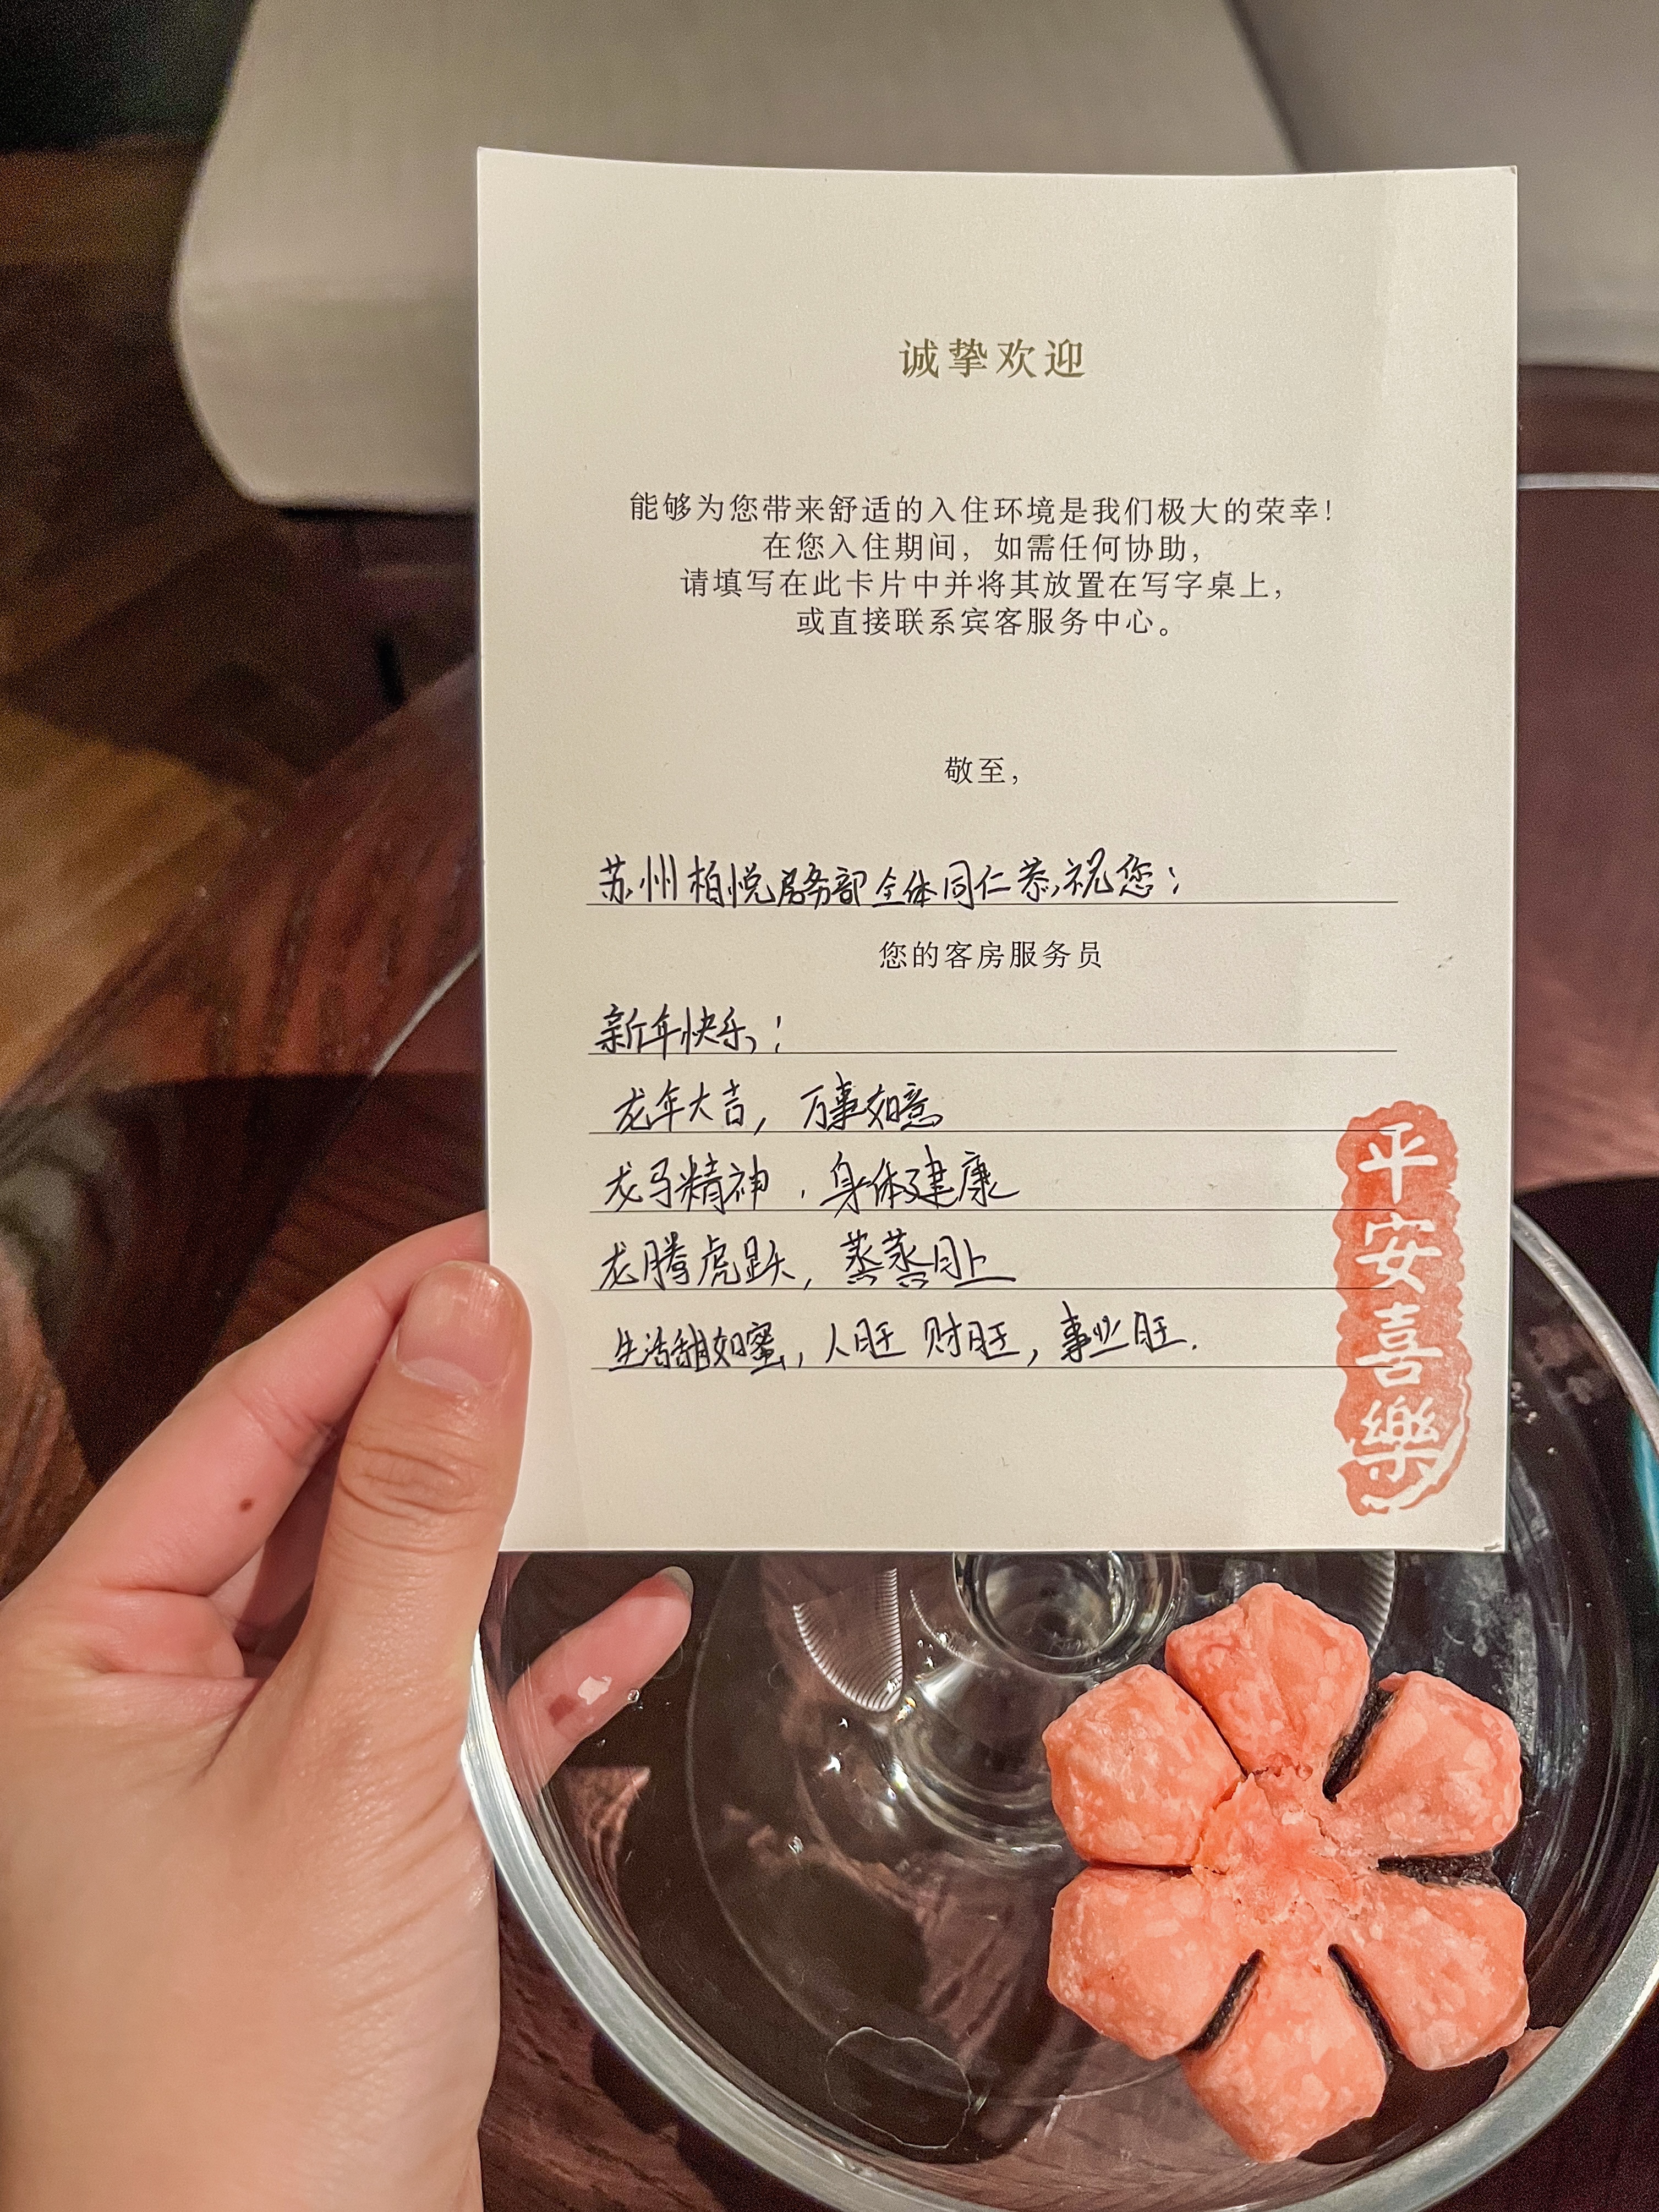 诚挚欢迎
能够为您带来舒适的入住环境是我们极大的荣幸!
在您入住期间，如需任何协助，
请填写在此卡片中并将其放置在写字桌上，
或直接联系宾客服务中心。
敬至，
苏州柏悦房务部全体同仁恭祝您：
您的客房服务员
新年快乐！
龙年大吉，万事如意
龙马精神，身体建康
龙腾虎跃，蒸蒸日上
生活甜如蜜，人旺 财旺，事业旺.
平安喜樂